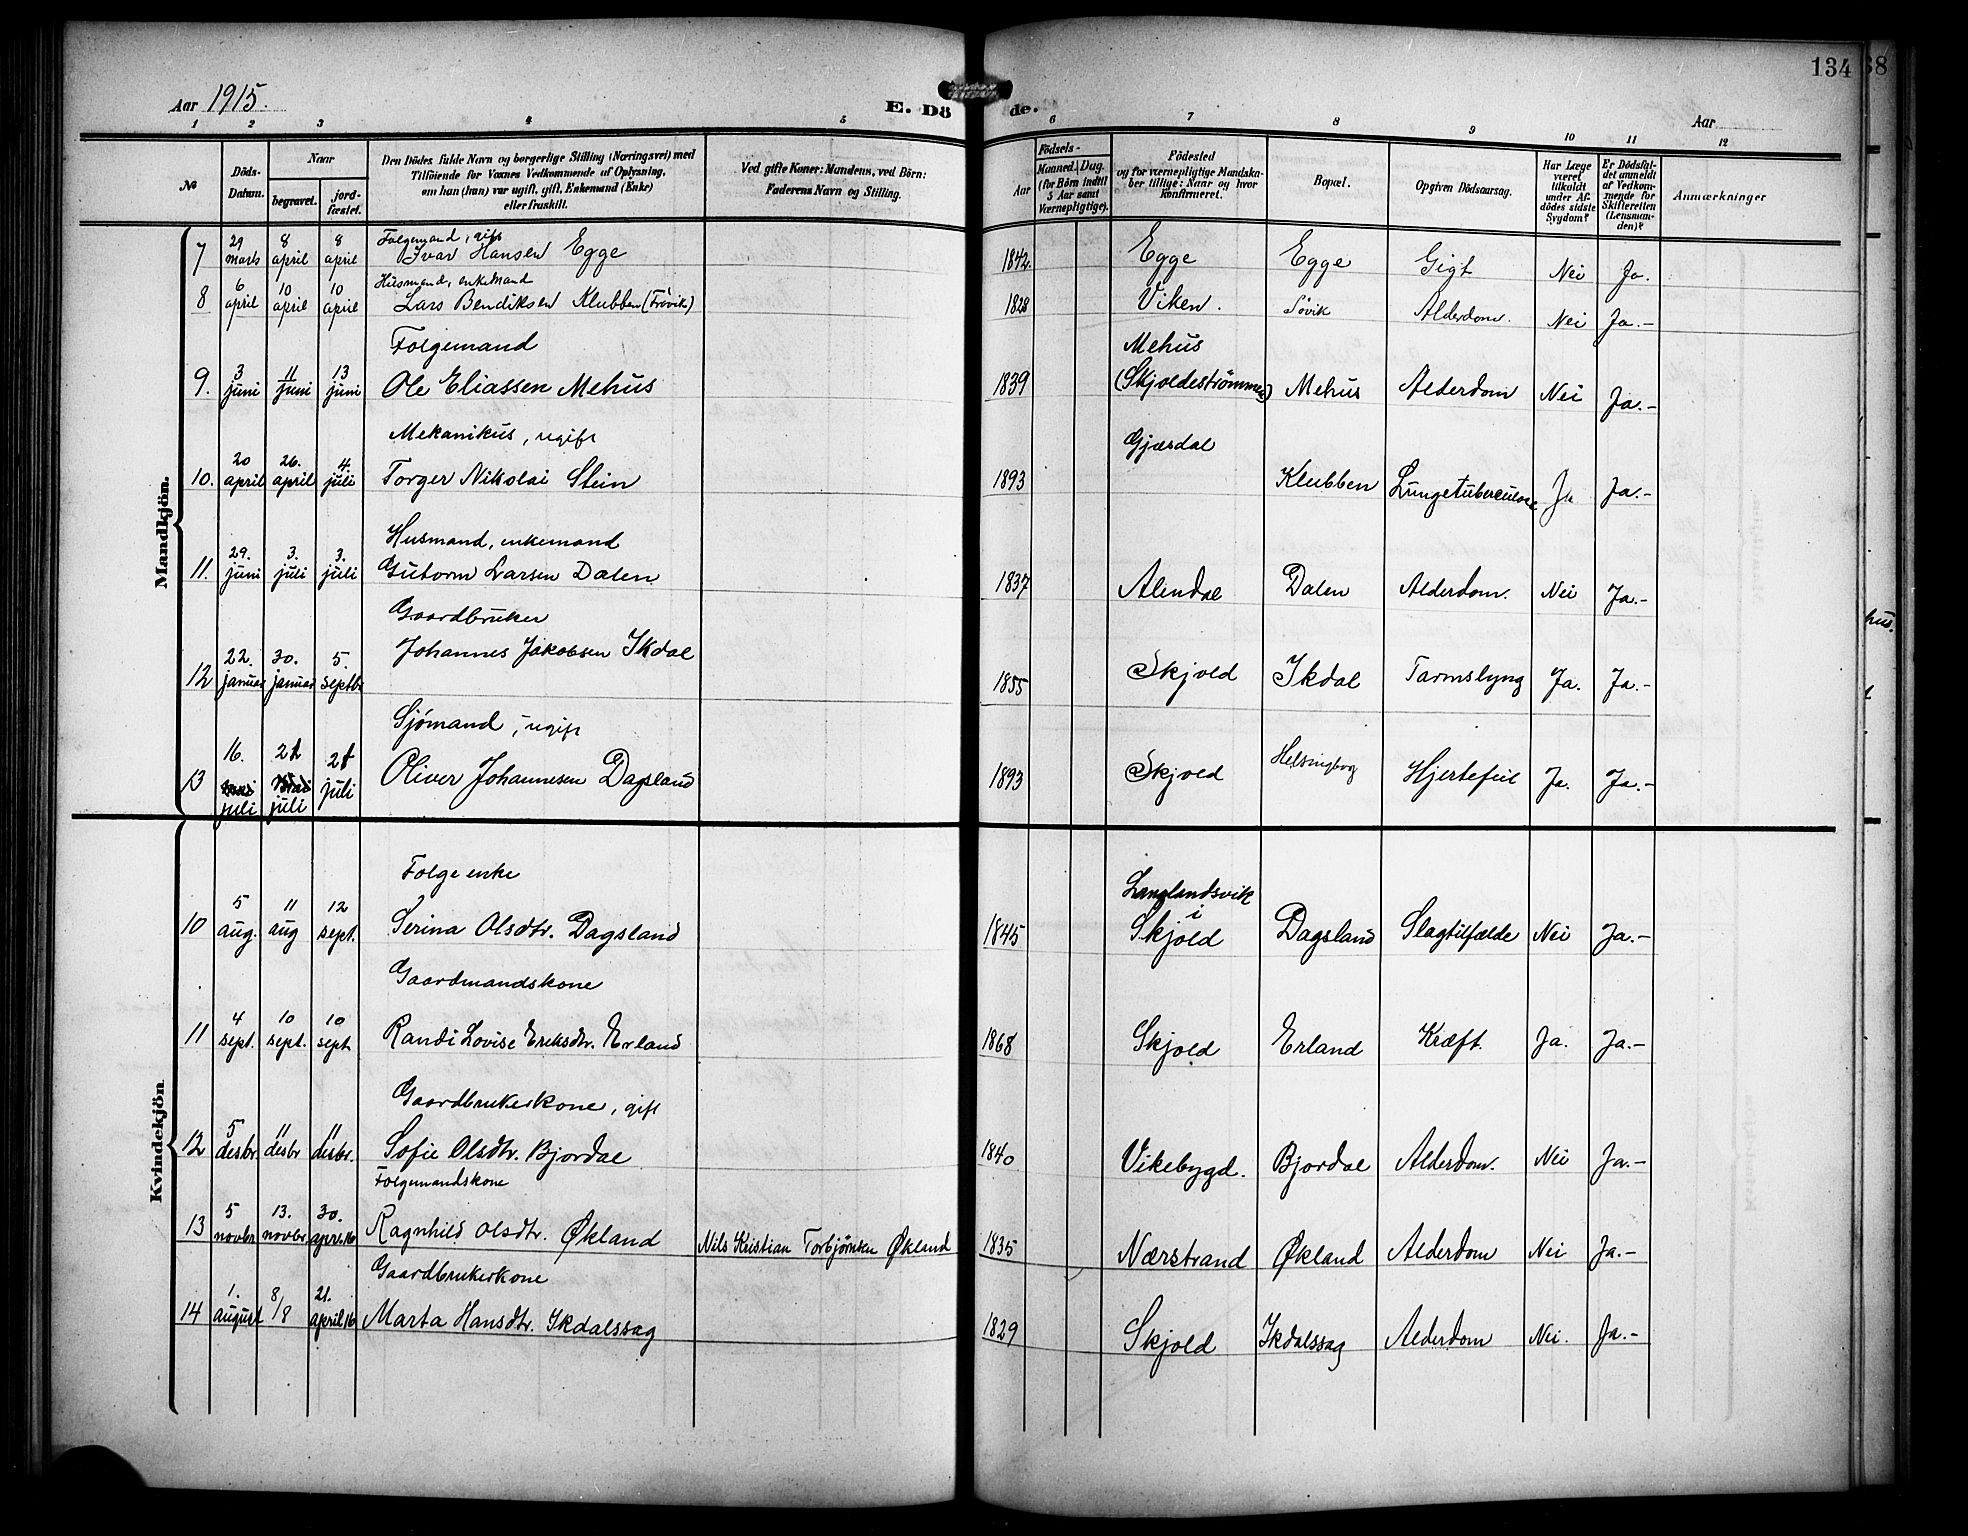 Aar 1915.
E. Dö de.
134
68
Aar
1 2 3 4 5 6 7 8 9 10 11 12
No
Döds-Datum.
Naar
begravet.
jord-fæstet.
Den Dödes fulde Navn og borgerlige Stilling (Næringsvei) med
Tilföiende for Voxnes Vedkommende af Oplysning,
om han (hun) var ugift, gift, Enkemand (Enke)
eller fraskilt.
Ved gifte Koner: Mandens, ved Börn:
Faderens Navn og Stilling.
Födsels-
Aar
Maaned. Dag.
(for Börn indtil
5 Aar samt
Værnepligtige).
Födested
og for værnepligtige Mandska-
ber tillige: Naar og hvor
konfirmeret.
Bopæl.
Opgiven Dödsaarsag.
Har Læge
været
tilkaldt
under Af-
dödes sidste
Sygdom?
Er Dödsfal-
det anmeldt
af Vedkom-
mende for
Skifteretten
(Lensman-
den)?
Anmærkninger
Mandkjön.
Folgemand, gift
7 29 marts 8 april 8 april Ivar Hansen Egge 1842. Egge Egge Gigt Nei Ja.
Husmand, enkemand
8 6 april 10 april 10 april Lars Bendiksen Klubben (Frövik) 1828 Viken. Sövik Alderdom. Nei Ja.-
Folgemand Mehus
9. 3 juni 11 juni 13 juni Ole Eliassen Mehus 1839 (Skjoldestrømmen) Mehus Alderdom Nei Ja.-
Mekanikus, ugift Gjærdal
10. 20 april 26. april 4. juli Torger Nikolai Stein 1893 Klubben Lungetuberculose Ja Ja.-
Husmand, enkemand
11. 29. juni 3. juli 3. juli Gutorm Larsen Dalen 1837 Alendal Dalen Alderdom. Nei Ja.-
Gaardbruker
12 22. januar 30. januar 5. septbr Johannes Jakobsen Ikdal 1855 Skjold Ikdal Tarmslyng Ja. Ja.-
Sjömand, ugift
13 16. juli 21 juli 21 juli Oliver Johannesen Dagsland 1893 Skjold Helsingborg Hjertefeil Ja. Ja.-
Kvindekjön
Folge enke Langlandsvik i
10 5 aug. 11 aug 12 sept. Serina Olsdtr. Dagsland 1845 Skjold Dagsland Slagtilfælde Nei Ja.-
Gaardmandskone
11 4 sept. 10 sept. 10 sept Randi Lovise Eriksdtr. Erland 1868 Skjold Erland Kræft. Ja. Ja.-
Gaardbrukerkone, gift
12 5 desbr. 11 desbr 11 desbr. Sofie Olsdtr. Bjordal 1840 Vikebygd. Bjordal Alderdom. Nei Ja.-
Folgemandskone
13 5 novbr 13. novbr 30. apr. 16 Ragnhild Olsdtr. Økland Nils Kristian Torbjörnsen Økland 1835 Nærstrand Økland Alderdom Nei Ja.-
Gaardbrukerkone
14 1. august 8/8 21. april 16 Marta Hansdtr. Ikdalssag 1829 Skjold Ikdalssag Alderdom Nei. Ja.-
hus.